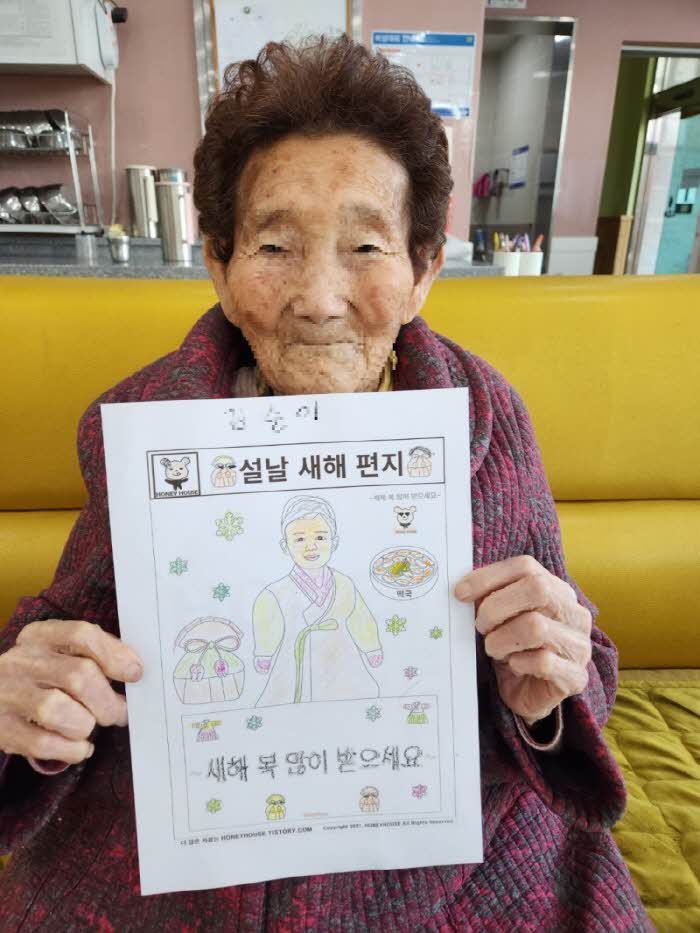 설날 새해 편지
HONEY HOUSE
~새해 복 많이 받으세요~
떡국
~새해 복 많이 받으세요~
더 많은 자료는 HONEYHOUSE TISTORY.COM Copyright 2021. HONEYHOUSE All Rights Reserved